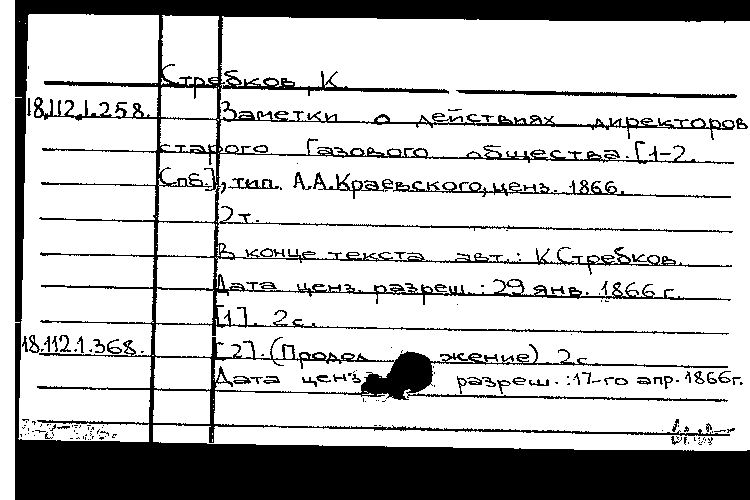 Стребков, К.
18.112.1.258. Заметки о действиях директоров
старого Газового общества. [1-2.
Спб.], тип. А.А.Краевского, ценз. 1866.
2 т.
В конце текста авт.: К.Стребков.
Дата ценз. разреш.: 29 янв. 1866 г.
[1]. 2 с.
18.112.1.368. [2]. (Продолжение). 2 с.
Дата ценз. разреш.: 17-го апр. 1866 г.